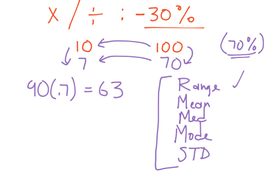 X / ÷ : -30%
10 ← 100 (70%)
7 ← 70
90(.7) = 63
Range ✓
Mean
Med
Mode
STD